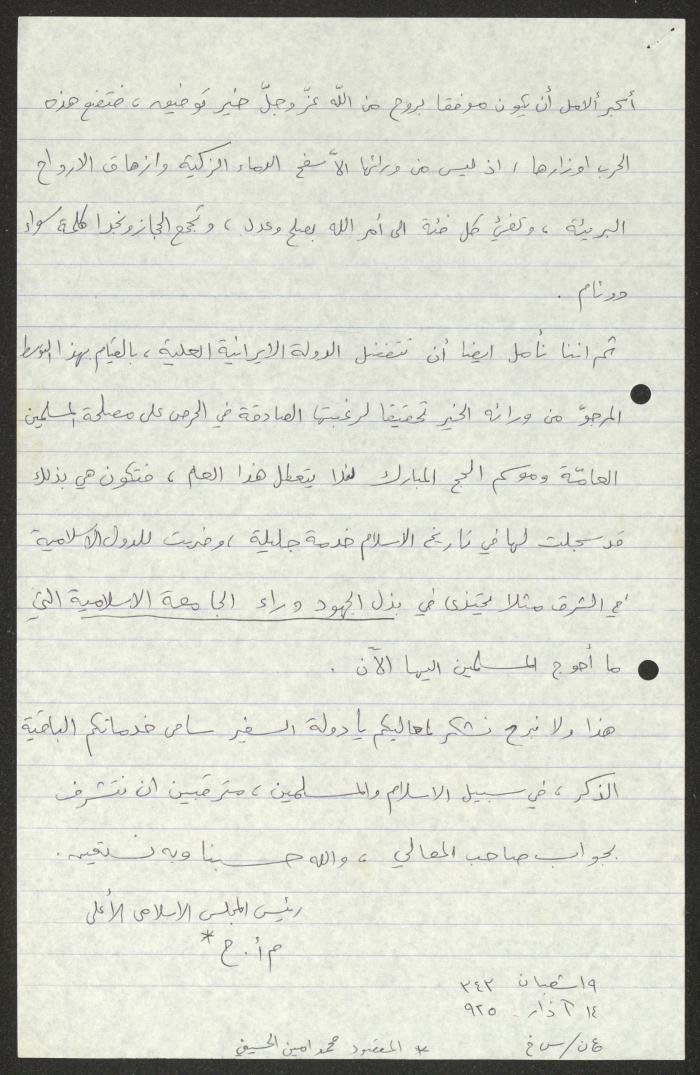 أكبر ألامل أن يكون موفقا بروح من الله عزّ وجلّ خير توفيق، فتضع هذه
الحرب اوزارها، اذ ليس من ورائها الّا سفح الدماء الزكية وازهاق الارواح
البريئة، وتفئ كل فئة الى أمر الله بصلح وعدل، وتجمع الحجاز ونجدا كلمة سواء
ووئام.
ثم اننا نأمل ايضا أن تتفضل الدولة الايرانية العلية، بالقيام بهذا التوسط
المرجوّ من ورائه الخير تحقيقا لرغبتها الصادقة في الحرص على مصلحة المسلمين
العامّة وموسم الحج المبارك لئلا يتعطل هذا العام، فتكون هي بذلك
قد سجلت لها في تاريخ الاسلام خدمة جليلة، وضربت للدول الاسلامية
في الشرق مثلا يحتذى في بذل الجهود وراء الجامعة الاسلامية التي
ما أحوج المسلمين اليها الآن.
هذا ولا نبرح نشكر لمعاليكم يا دولة السفير سامى خدماتكم الباقية
الذكر، في سبيل الاسلام والمسلمين، مترقبين ان نتشرف
بجواب صاحب المعالي، والله حسبنا وبه نستعين.
رئيس المجلس الاسلامى الأعلى
م أ. ح *
١٩ شعبان ٣٤٣
١٤ آذار ٩٢٥
ع ن/س غ
* المقصود محمد امين الحسيني